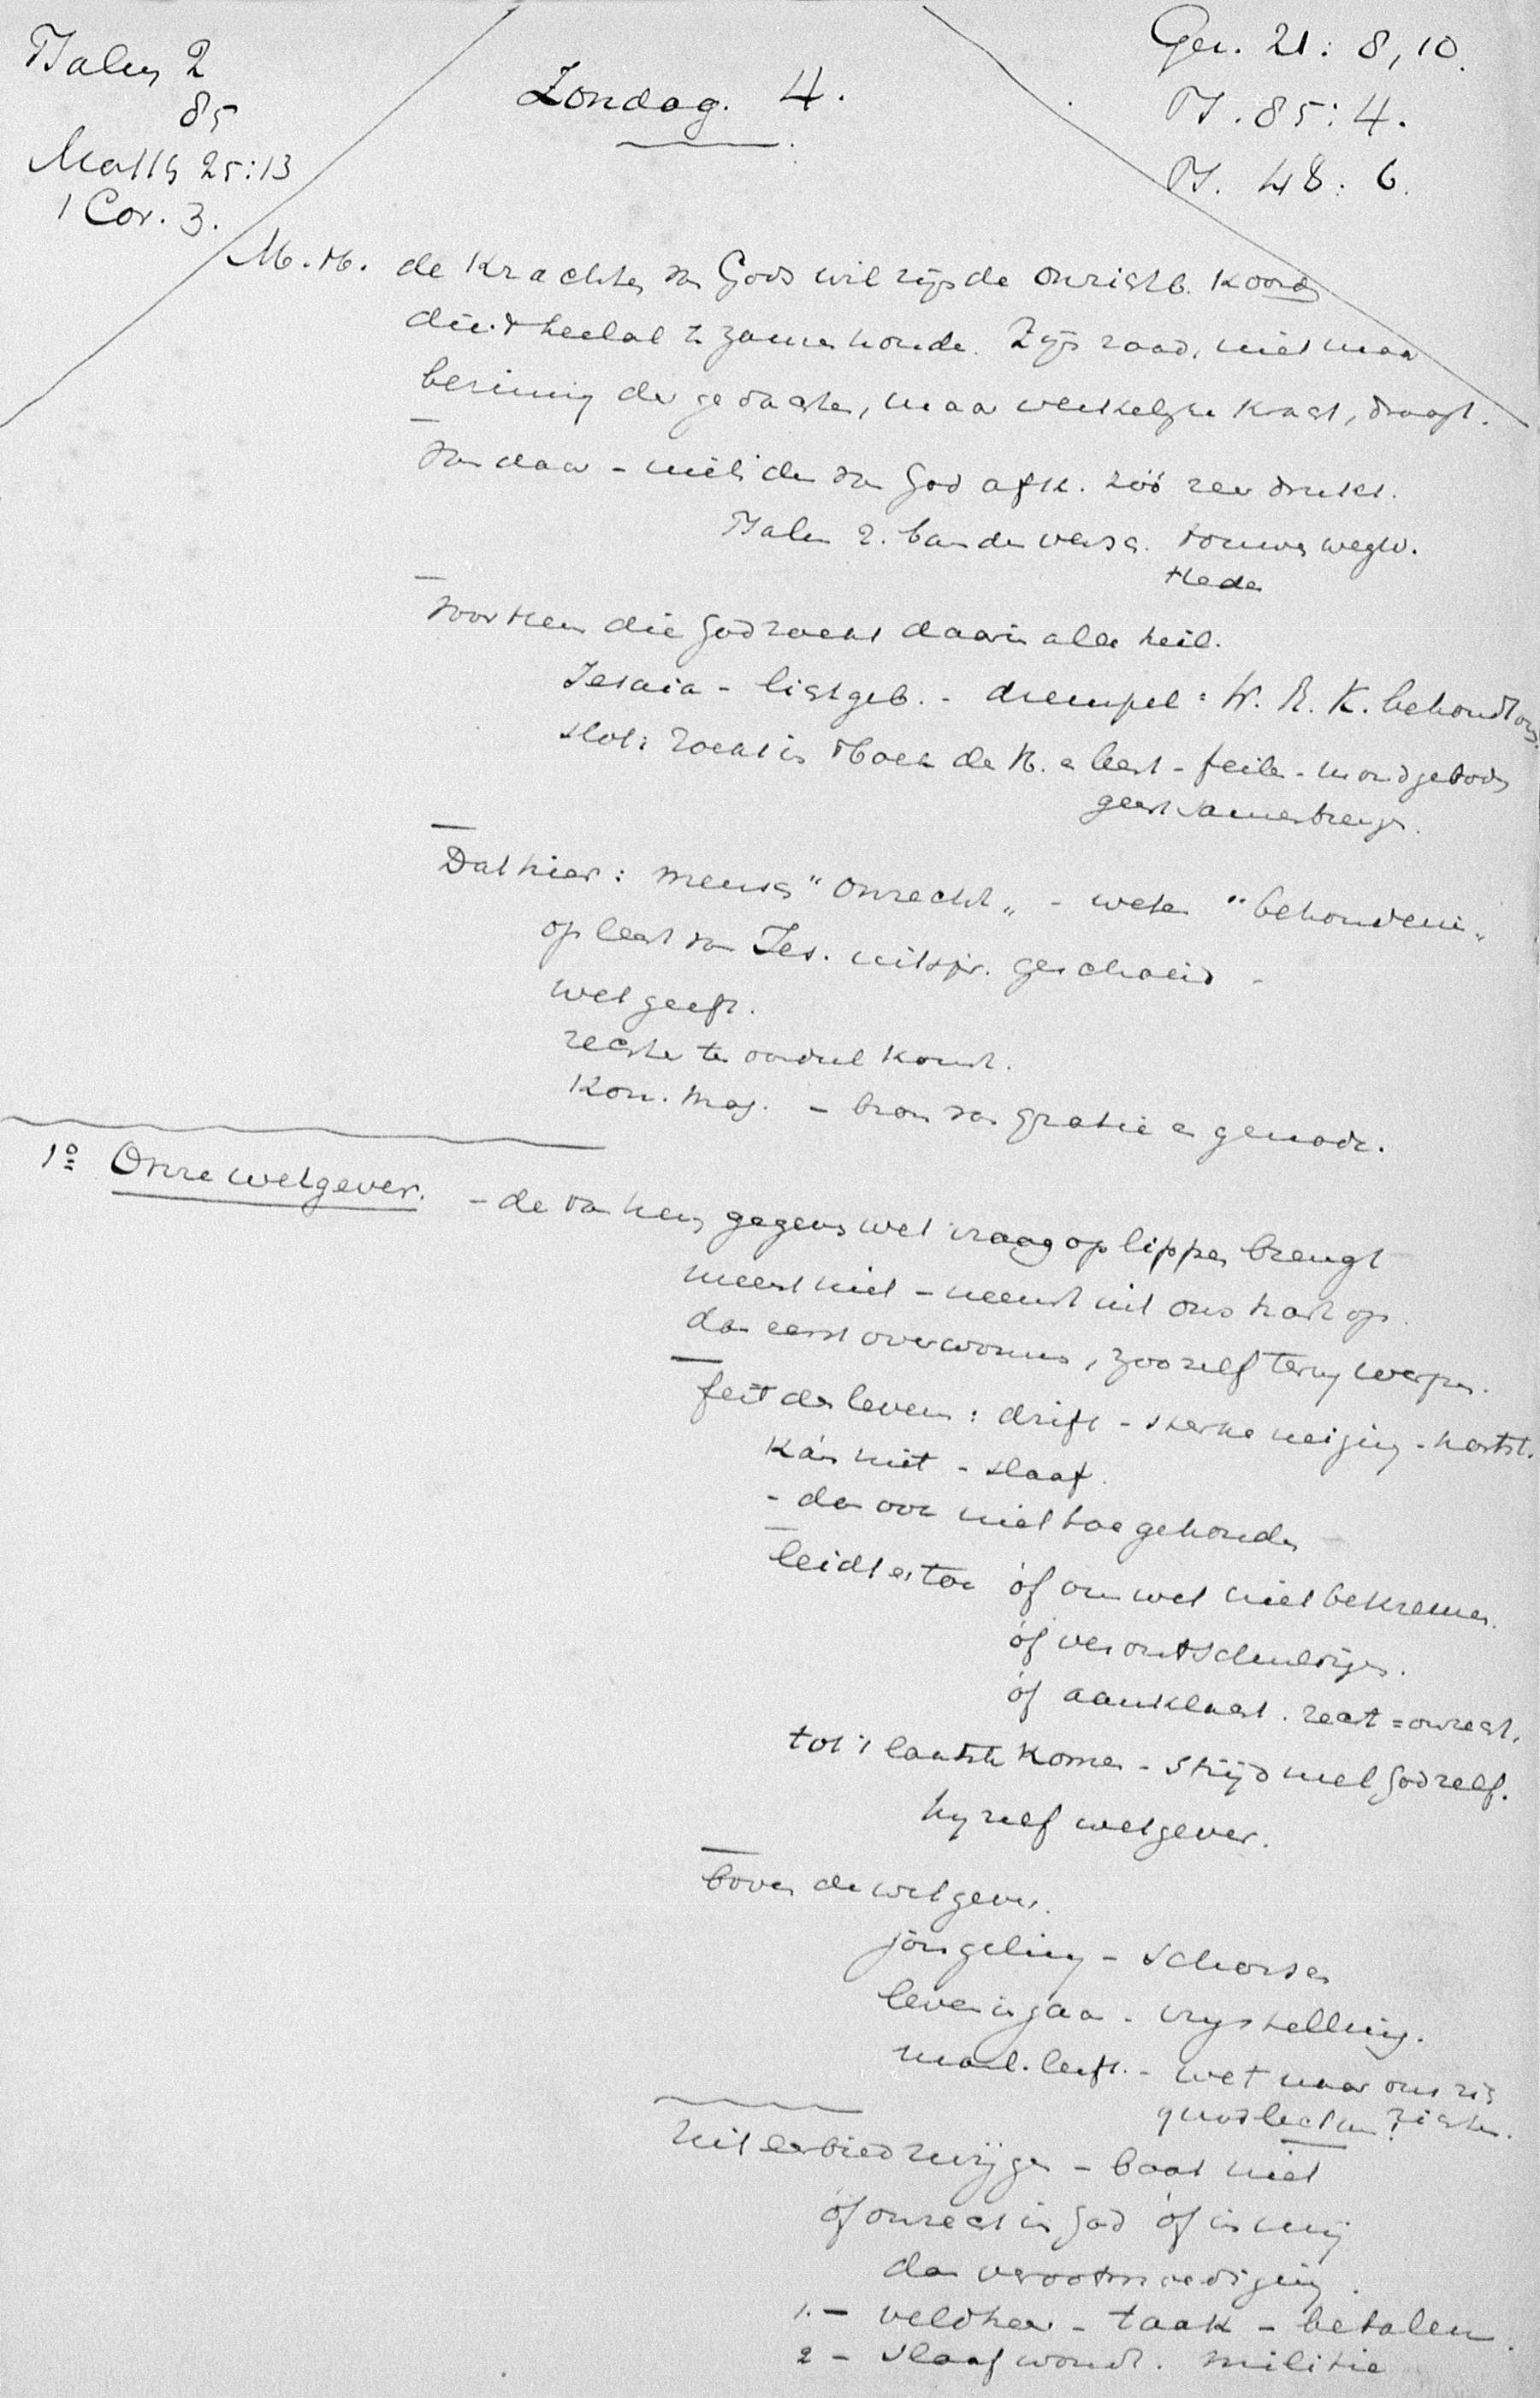 Psalm 2
85
Matth 25:13
1 Cor. 3.
Zondag. 4.
Gez. 21: 8, 10.
Ps. 85: 4.
Ps. 48: 6.
M.H. de Krachten van Gods wil zijn de onzichtb. koorden
die 't heelal te zamen houden. Zijn raad, niet maar
der gedachten, maar werkelijke kracht, draagt.
Van daar - niets den van God afk. zóó zeer drukt.
Psalm 2. banden versch. touwen wegw.
Heden
Voor hem die God zoekt daarin alle heil.
Jesaia - - drempel: W. R. K. behoudt ons
slot: zoekt in Boek de H. en leest - feilen - mond geboden
geest samenbrengen.
Dat hier: mensch "onrecht" - weten "behoudenis"
op leest van Jes. uitspr. geschoeid -
wet geeft.
rechter te oordeel komt.
Kon. Maj. - bron van gratie en genade.
1º Onze wetgever. - de van hem gegeven wet vraag op lippen brengt
meest niet - neemt uit ons hart op.
dan eerst overwonnen, zoo zelf terug werpen.
feit des levens: drift - sterke neiging - hartst.
Kán niet - slaaf.
- dan ook niet toe gehouden
leidt er toe óf om wet niet bekreunen.
óf verontschuldigen.
óf aanklacht. recht = onrecht.
tot 't laatste komen - strijd met God zelf.
hij zelf wetgever.
boven de wetgever.
jongeling - schorsen
leven ingaan - vrijstelling.
man. leeft. - wet naar ons zich
richten.
Uit eerbied zwijgen - baat niet
óf onrecht in God óf in mij
dan verootmoediging.
1. - veldheer - taak - betalen.
2 - slaaf wordt. militie